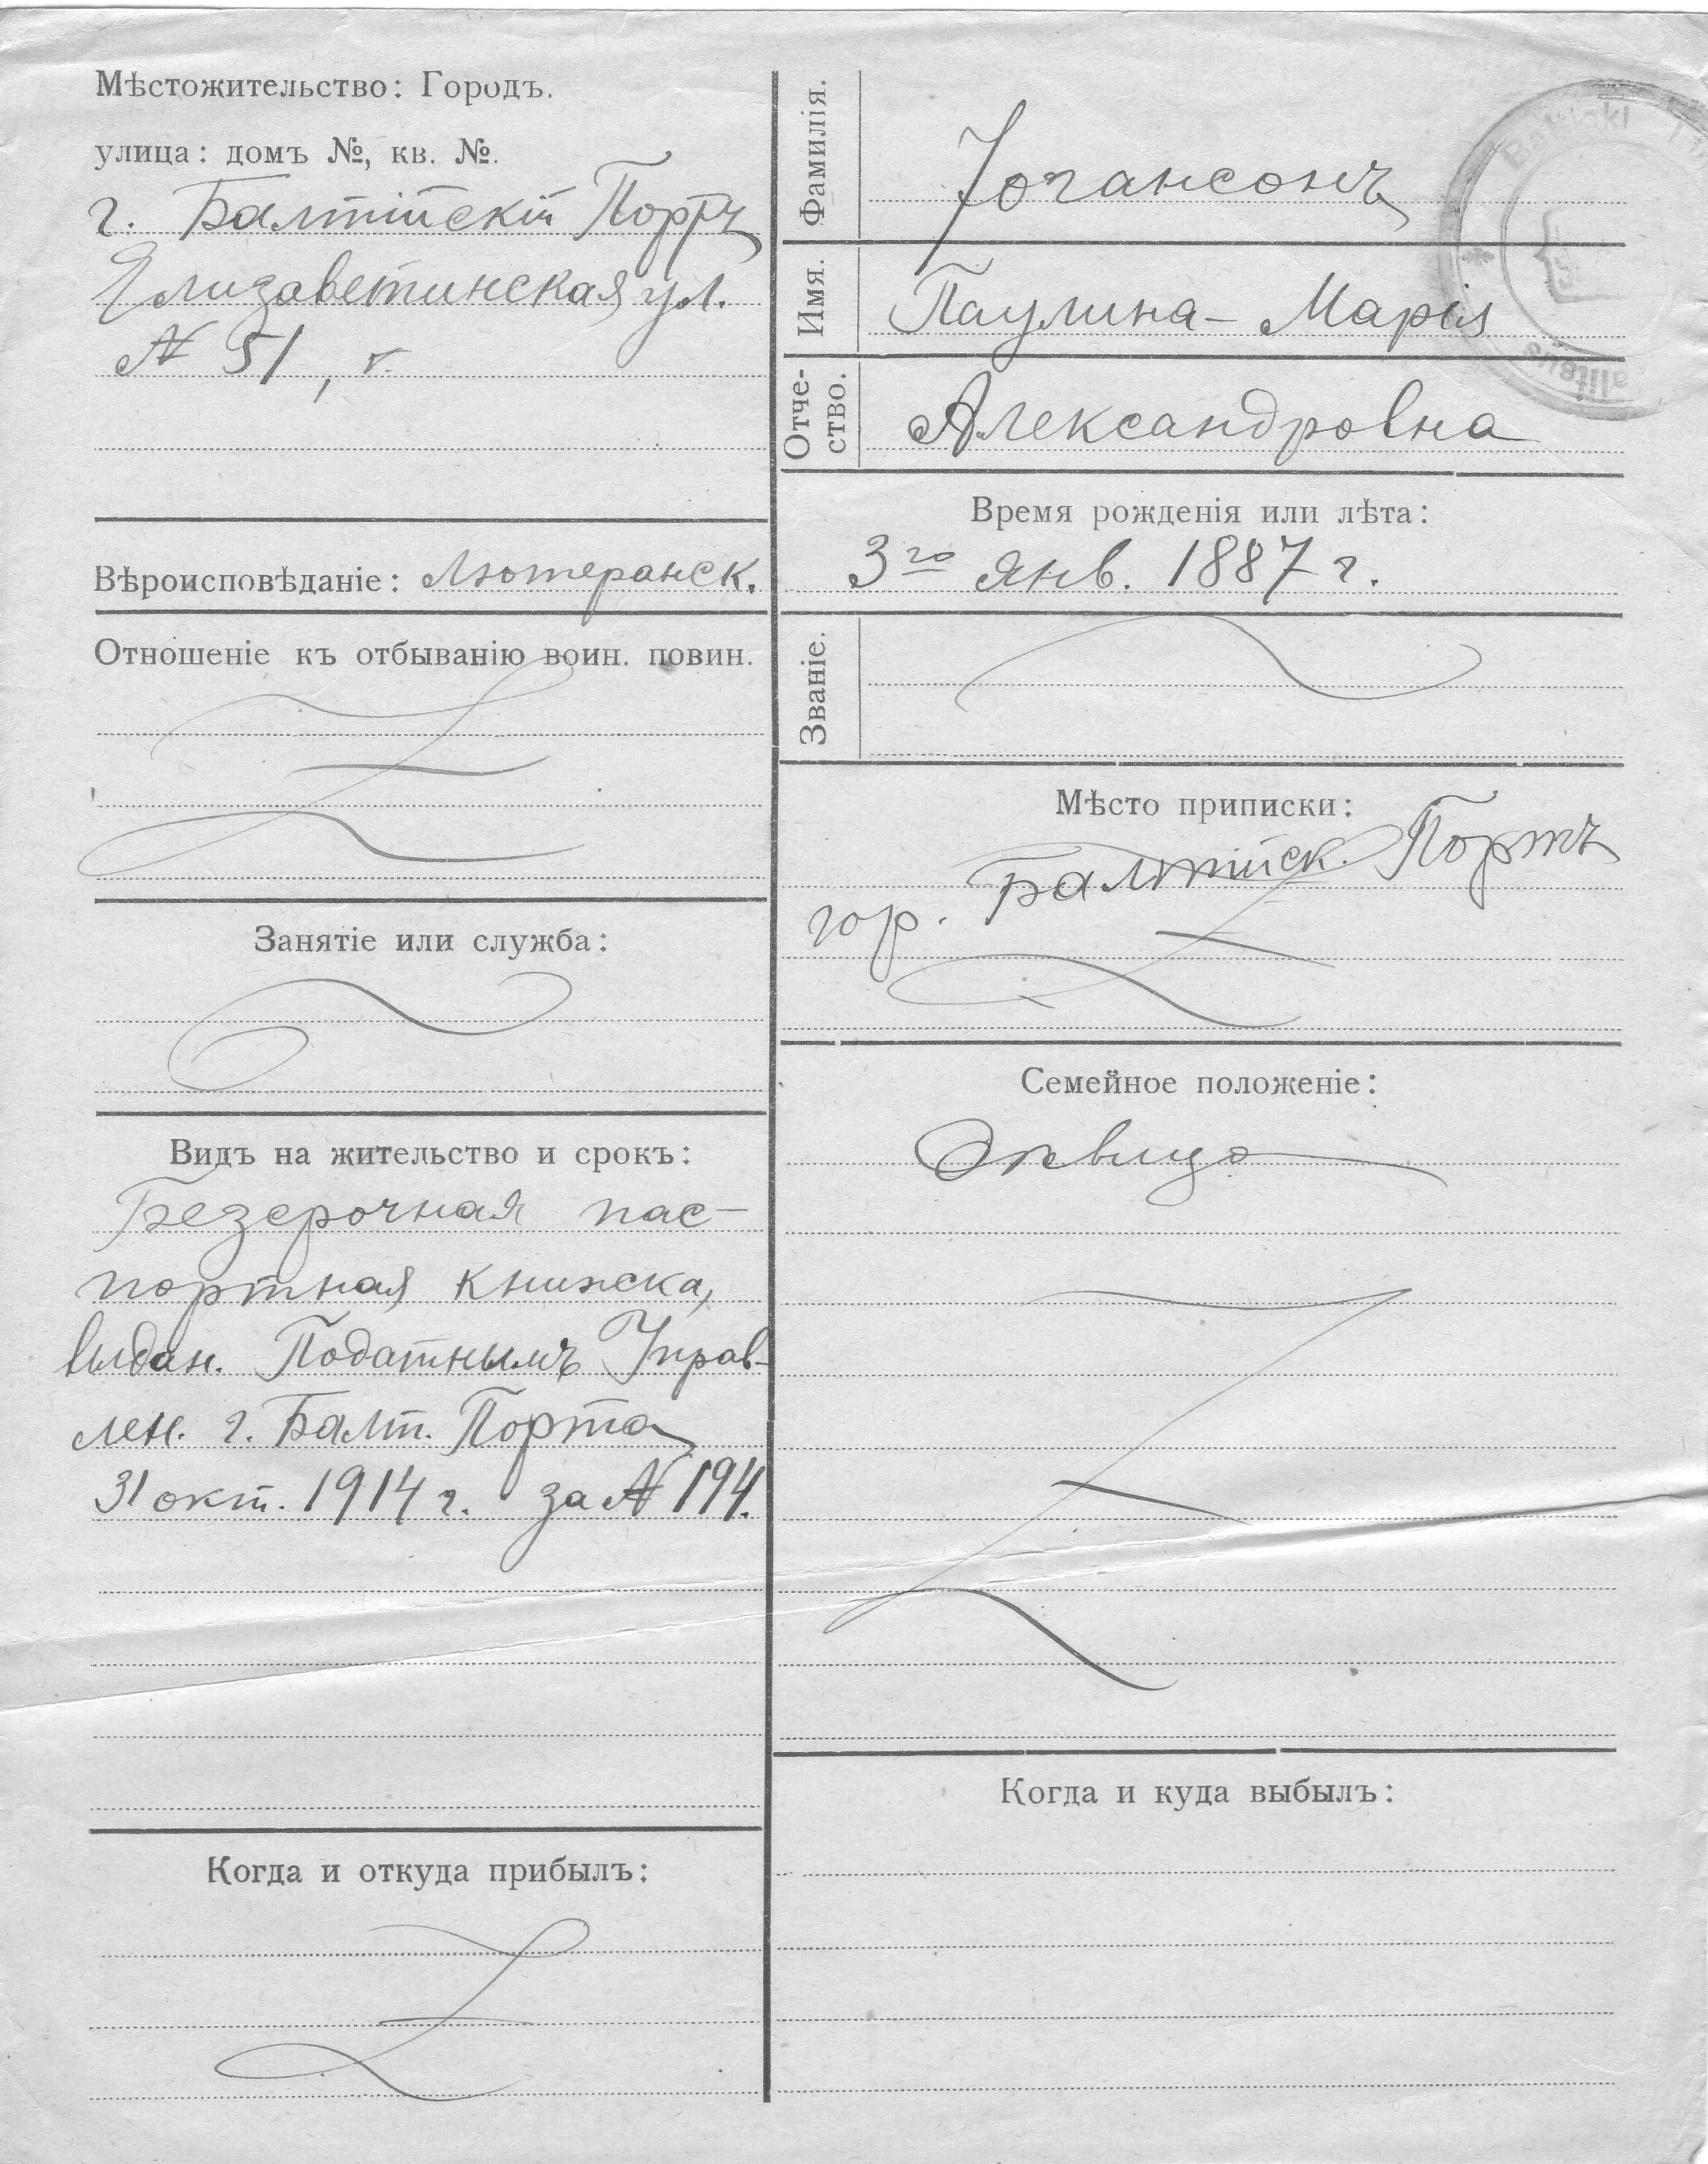 Мѣстожительство: Городъ.
улица: домъ №, кв. №.
г. Балтійскій Портъ
Елизаветинская ул.
№ 51, г.
Вѣроисповѣданіе: Лютеранск.
Отношеніе къ отбыванію воин. повин.
Занятіе или служба:
Видъ на жительство и срокъ:
Безсрочная пас-
портная книжка,
выдан. Податнымъ Управ-
лен. г. Балт. Порта
31 окт. 1914 г. за № 194.
Когда и откуда прибылъ:
Фамилія.
Іогансонъ
Имя.
Паулина-Марія
Отче-
ство.
Александровна
Время рожденія или лѣта:
3го янв. 1887 г.
Званіе.
Мѣсто приписки:
гор. Балтійск. Портъ
Семейное положеніе:
Дѣвица
Когда и куда выбылъ:
Baltiski